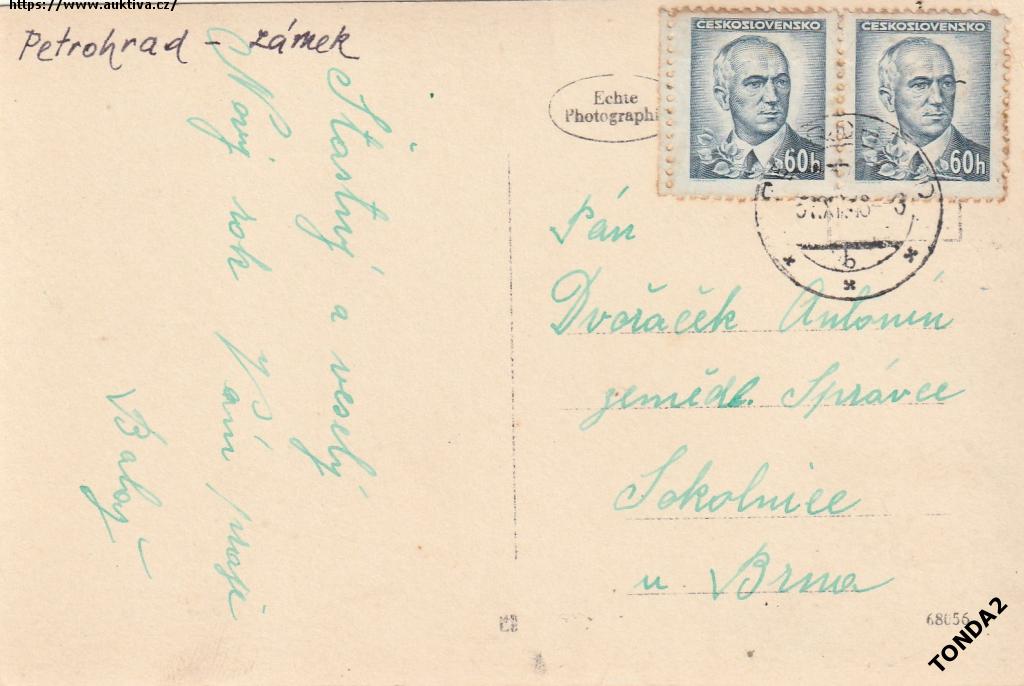 https://www.auktiva.cz/
Petrohrad - zámek
Šťastný a veselý
Nový rok Vám přeje
Echte
Photographie
ČESKOSLOVENSKO
60h
ČESKOSLOVENSKO
60h
b
Pán
Dvořáček Antonín
zeměděl. Správce
Sokolnice
u Brna
68056
TONDA2